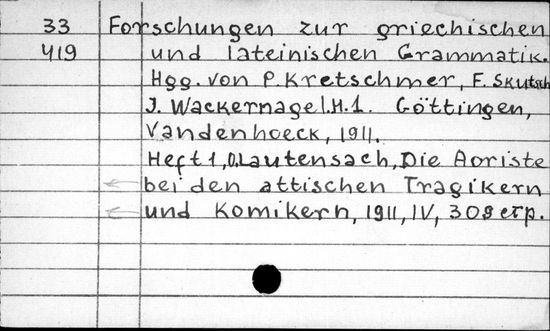 33 Forschungen zur griechischen
419 und lateinischen Grammatik.
Hgg. von P. Kretschmer, F. Skutsch
J. Wackernagel. H.1. Göttingen,
Vandenhoeck, 1911.
Heft 1, O. Lautensach, Die Aoriste
bei den attischen Tragikern
und Komikern, 1911, IV, 308 стр.